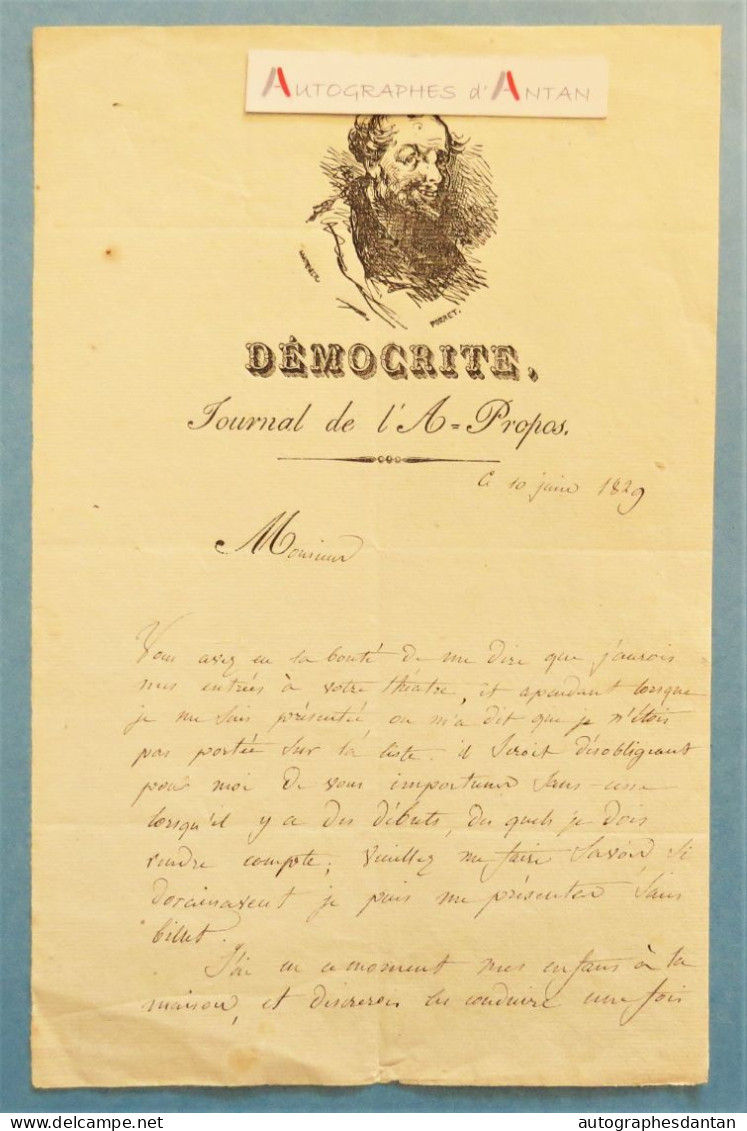 AUTOGRAPHES d'ANTAN
PORRET.
DÉMOCRITE,
Journal de l'A=Propos.
Ce 10 juin 1829
Monsieur
Vous avez eu la bonté de me dire que j'aurois
mes entrées à votre théatre, et cependant lorsque
je me suis présentée on m'a dit que je n'étois
pas portée sur la liste. il seroit désobligeant
pour moi de vous importuner sans-cesse
lorsqu'il y a des débuts, des quels je dois
rendre compte; veuillez me faire savoir si
dorainavent je puis me présenter sans
billet.
J'ai en ce moment mes enfans à la
maison, et désirerois les conduire une fois
delcampe.net
autographesdantan